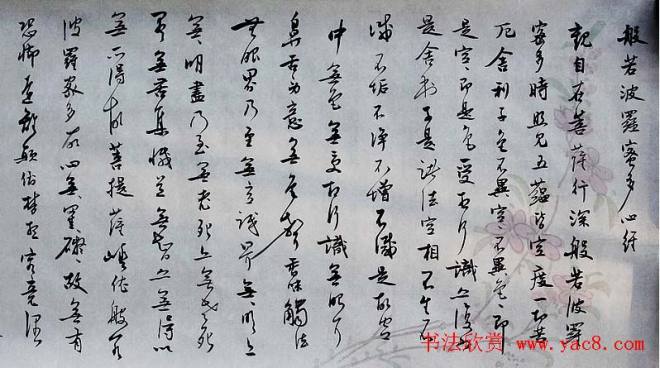 般若波羅蜜多心経
觀自在菩薩行深般若波羅
蜜多時照見五蘊皆空度一切苦
厄舍利子色不異空空不異色色即
是空空即是色受想行識亦復如
是舍利子是諸法空相不生不
滅不垢不淨不增不減是故空
中無色無受想行識無眼耳
鼻舌身意無色聲香味觸法
無眼界乃至無意識界無無明亦
無無明盡乃至無老死亦無老死
盡無苦集滅道無智亦無得以
無所得故菩提薩埵依般若
波羅蜜多故心無罣礙故無有
恐怖遠離顛倒夢想究竟涅
书法欣赏 www.yac8.com